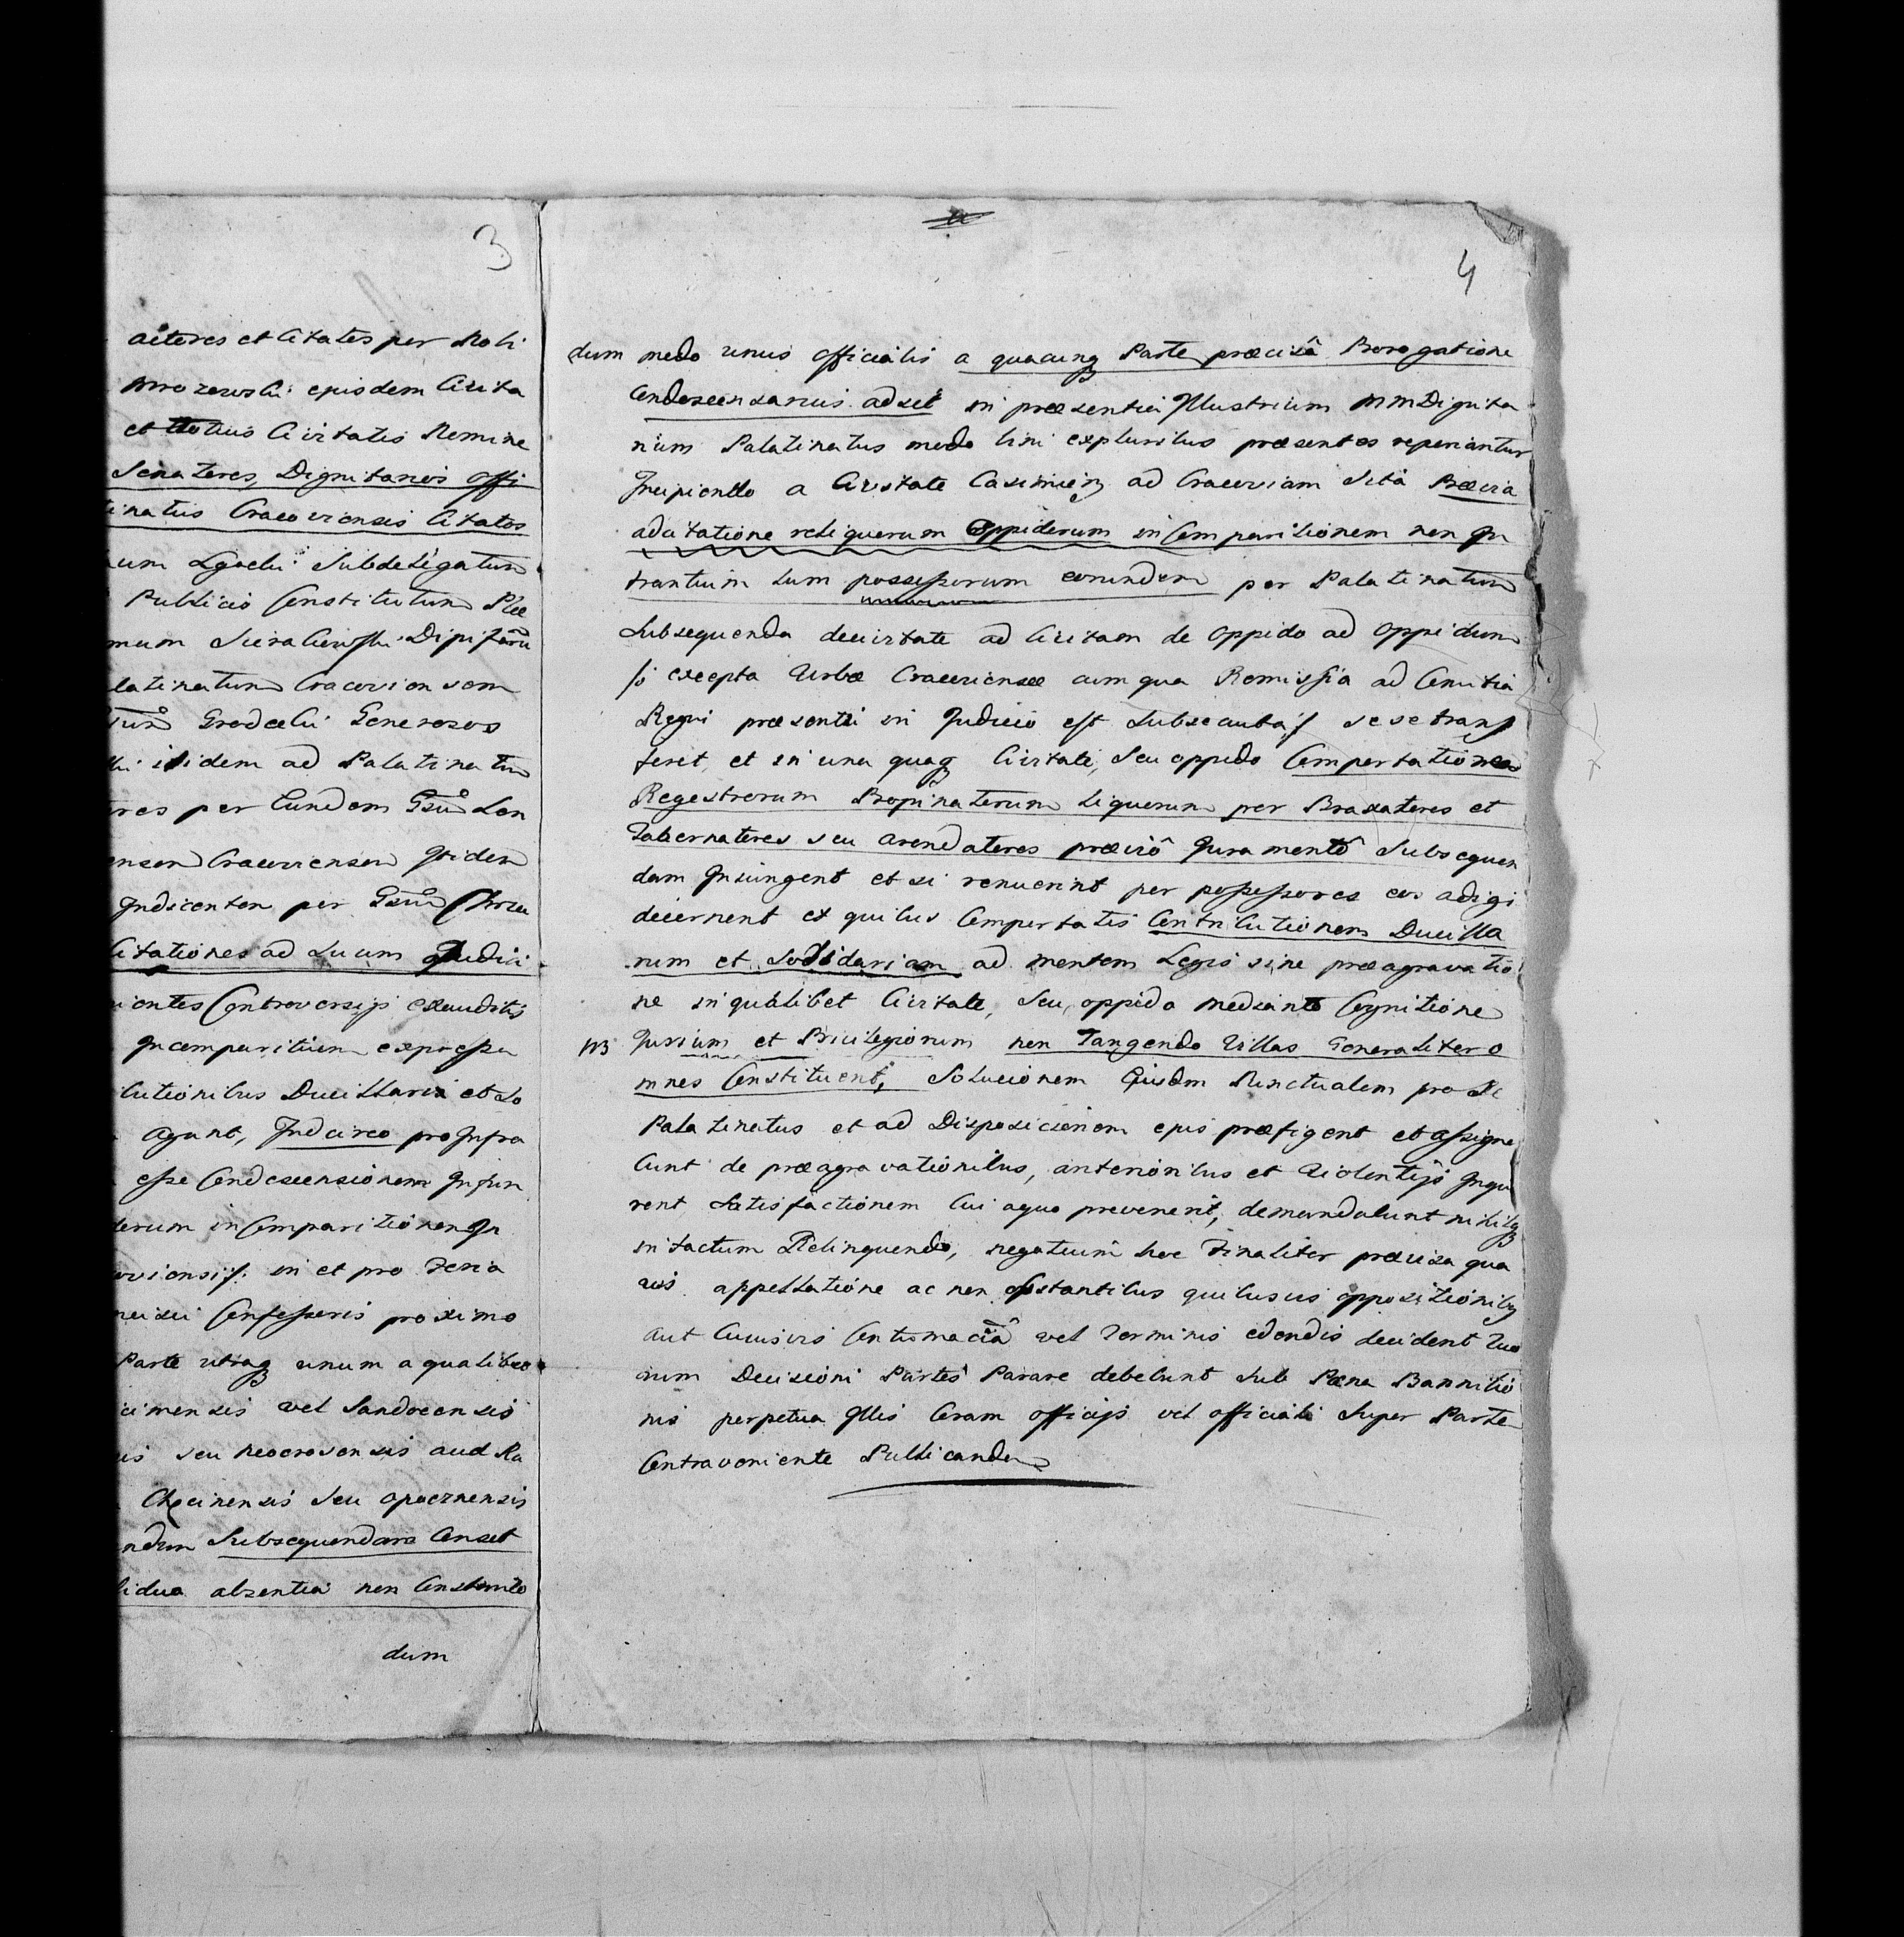 3
actores et Citatos per Nobi
Mrozowski ejusdem Civita
et totius Civitatis Nomine
Senatores, Dignitarios offi
inatus Cracoviensis Citatos
um Lgocki Subdelegatum
Publicis Constitutum Ple
mum Sierakowski Dignitaru
latinatum Cracoviensem
Grodecki Generosos
itidem ad Palatinatum
res per Eundem Gsum Lon
ensem Cracoviensem Itidem
Indicentem per Gsum
Citationes ad Suum Judici
ientes Controversijs exauditis
Incomparitium expressa
ibutionibus Ducillari et So
agunt, Indcirco pro Infra
esse Condescensionem Infun
dorum in Comparitionem In
oviensis/: in et pro Feria
Confessoris proximo
Parte utraq unum a qualibeo
cimensis vel Sandecensis
is seu neocrosensis aud Ra
Chęcinensis seu opocznensis
ndum Subsequendam Conset
lidua absentia non Constanto
dum
4
dum modo unus officialis a quacunq Parte, præcisâ Prorogatione
Condescensarius adsit in præsentia Illustrium MM Dignita
rium Palatinatus modo Uni expluribus præsentes reperiantur
Incipiendo a Civitate Casimien ad Cracoviam Sita Prævia
adcitatione reliquorum Oppidorum in Comparitionem non In
trantium tum possessorum eorundem per Palatinatum
Subsequenda decivitate ad Civitaem de Oppido ad Oppidum
/: excepta Urbæ Cracoviensæ cum qua Remissia ad Comitia
Regni præsenti in Judicio est Subsecuta :/ sese trans
feret, et in una quaq Civitate, Seu oppido Comportationes
Regestrorum Propinatorum Liquorum per Braxatores et
Tabernatores seu arendatores præviô Juramentô Subsequen
dam Injungent et si renuerint per possessores eos adigi
decernent ex quibus Comportatis Contributionem Ducilla
rum et Solidariam ad mentem Legis sine præagravatio
ne in qualibet Civitate, Seu, oppido mediante Cognitione
NB Jurium et Privilegiorum non Tangendo Villas Generaliter o
mnes Constituent, Solucionem Ejusdm Punctualem pro Re
Palatinatus et ad Disposicionem ejus præfigent et assigna
bunt de præagravationibus, anterioribus et Violentijs Inqui
rent Satisfactionem Cui aquo provenerit, demandabunt nihilq
intactum Relinquendo, negotium hoc Finaliter præcisa qua
vis appellatione ac non obstantibus quibusvis oppositionibq
aut Cuiusvis Contumaciâ vel Terminis edendis decident
rum Decisioni Partes Parare debebunt Sub Pæna Bannitio
nis perpetua Illis Coram officijs vel officiali Super Parte
Contraveniente Publicanda